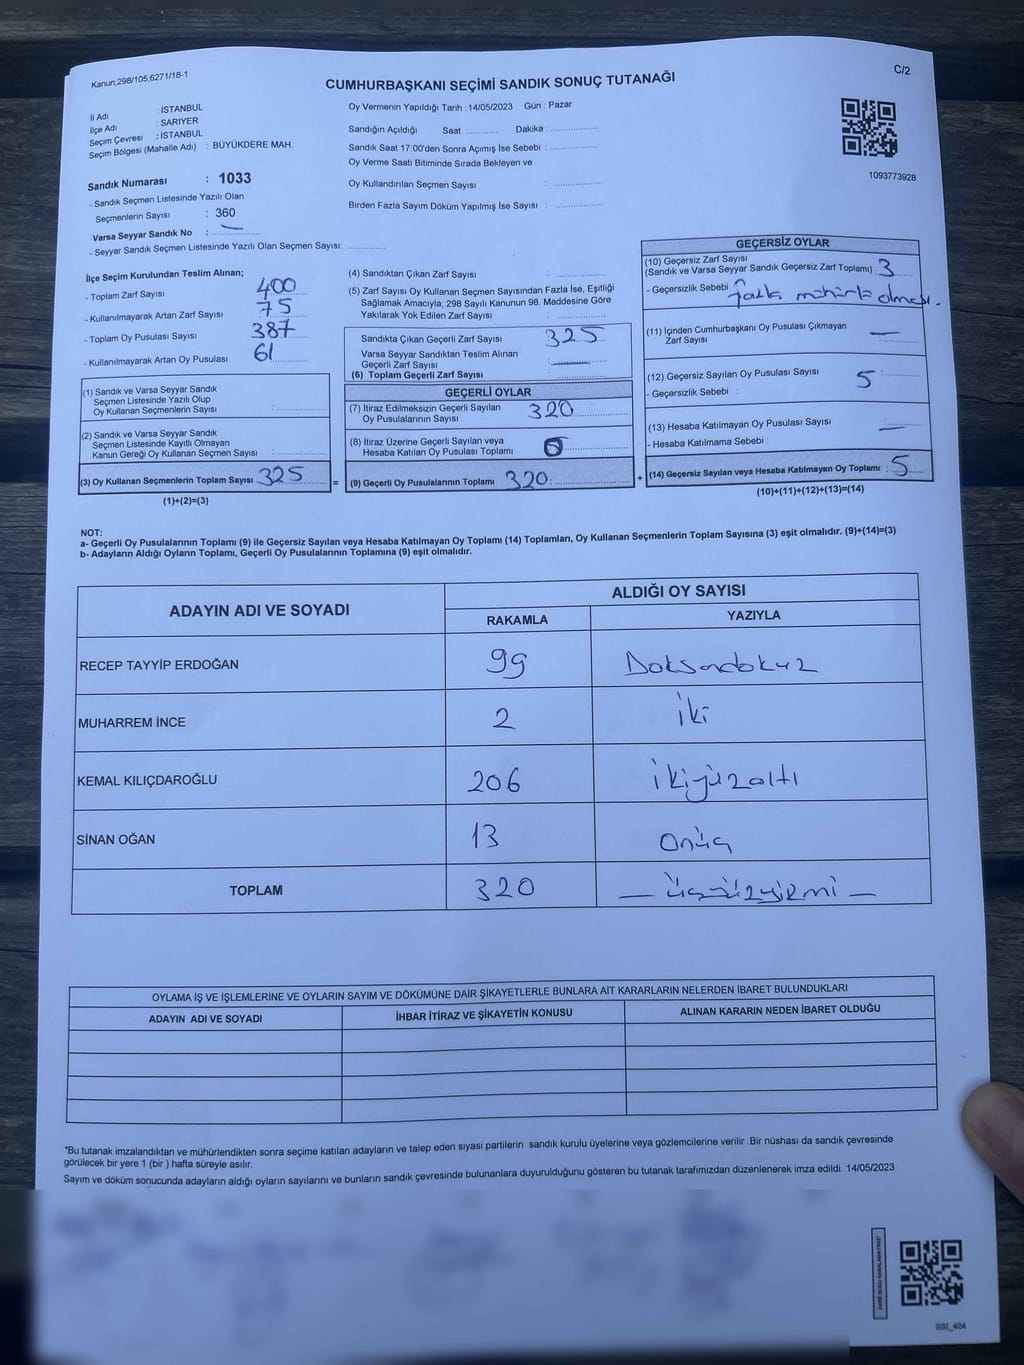 Kanun;298/105,6271/18-1
C/2
CUMHURBAŞKANI SEÇİMİ SANDIK SONUÇ TUTANAĞI
İl Adı : İSTANBUL
İlçe Adı : SARIYER
Seçim Çevresi : İSTANBUL
Seçim Bölgesi (Mahalle Adı) : BÜYÜKDERE MAH.
Sandık Numarası : 1033
- Sandık Seçmen Listesinde Yazılı Olan
Seçmenlerin Sayısı : 360
Varsa Seyyar Sandık No : —
- Seyyar Sandık Seçmen Listesinde Yazılı Olan Seçmen Sayısı:
Oy Vermenin Yapıldığı Tarih : 14/05/2023 Gün : Pazar
Sandığın Açıldığı Saat : Dakika :
Sandık Saat 17:00'den Sonra Açımış İse Sebebi :
Oy Verme Saati Bitiminde Sırada Bekleyen ve
Oy Kullandırılan Seçmen Sayısı :
Birden Fazla Sayım Döküm Yapılmış İse Sayısı :
1093773928
İlçe Seçim Kurulundan Teslim Alınan;
- Toplam Zarf Sayısı : 400
- Kullanılmayarak Artan Zarf Sayısı : 75
- Toplam Oy Pusulası Sayısı : 387
- Kullanılmayarak Artan Oy Pusulası : 61
(1) Sandık ve Varsa Seyyar Sandık
Seçmen Listesinde Yazılı Olup
Oy Kullanan Seçmenlerin Sayısı :
(2) Sandık ve Varsa Seyyar Sandık
Seçmen Listesinde Kayıtlı Olmayan
Kanun Gereği Oy Kullanan Seçmen Sayısı :
(3) Oy Kullanan Seçmenlerin Toplam Sayısı : 325
(1)+(2)=(3)
(4) Sandıktan Çıkan Zarf Sayısı :
(5) Zarf Sayısı Oy Kullanan Seçmen Sayısından Fazla İse, Eşitliği
Sağlamak Amacıyla; 298 Sayılı Kanunun 98. Maddesine Göre
Yakılarak Yok Edilen Zarf Sayısı :
Sandıkta Çıkan Geçerli Zarf Sayısı : 325
Varsa Seyyar Sandıktan Teslim Alınan
Geçerli Zarf Sayısı : —
(6) Toplam Geçerli Zarf Sayısı :
GEÇERLİ OYLAR
(7) İtiraz Edilmeksizin Geçerli Sayılan
Oy Pusulalarının Sayısı : 320
(8) İtiraz Üzerine Geçerli Sayılan veya
Hesaba Katılan Oy Pusulası Toplamı :
= (9) Geçerli Oy Pusulalarının Toplamı : 320
GEÇERSİZ OYLAR
(10) Geçersiz Zarf Sayısı
(Sandık ve Varsa Seyyar Sandık Geçersiz Zarf Toplamı) : 3
- Geçersizlik Sebebi : fazla mühürlü olması.
(11) İçinden Cumhurbaşkanı Oy Pusulası Çıkmayan
Zarf Sayısı : —
(12) Geçersiz Sayılan Oy Pusulası Sayısı : 5
- Geçersizlik Sebebi :
(13) Hesaba Katılmayan Oy Pusulası Sayısı : —
- Hesaba Katılmama Sebebi :
+ (14) Geçersiz Sayılan veya Hesaba Katılmayan Oy Toplamı : 5
(10)+(11)+(12)+(13)=(14)
NOT:
a- Geçerli Oy Pusulalarının Toplamı (9) ile Geçersiz Sayılan veya Hesaba Katılmayan Oy Toplamı (14) Toplamları, Oy Kullanan Seçmenlerin Toplam Sayısına (3) eşit olmalıdır. (9)+(14)=(3)
b- Adayların Aldığı Oyların Toplamı, Geçerli Oy Pusulalarının Toplamına (9) eşit olmalıdır.
ADAYIN ADI VE SOYADI
ALDIĞI OY SAYISI
RAKAMLA YAZIYLA
RECEP TAYYİP ERDOĞAN 99 Doksandokuz
MUHARREM İNCE 2 İki
KEMAL KILIÇDAROĞLU 206 İkiyüzaltı
SİNAN OĞAN 13 Onüç
TOPLAM 320 — üçyüzyirmi —
OYLAMA İŞ VE İŞLEMLERİNE VE OYLARIN SAYIM VE DÖKÜMÜNE DAİR ŞİKAYETLERLE BUNLARA AİT KARARLARIN NELERDEN İBARET BULUNDUKLARI
ADAYIN ADI VE SOYADI İHBAR İTİRAZ VE ŞİKAYETİN KONUSU ALINAN KARARIN NEDEN İBARET OLDUĞU
*Bu tutanak imzalandıktan ve mühürlendikten sonra seçime katılan adayların ve talep eden siyasi partilerin sandık kurulu üyelerine veya gözlemcilerine verilir .Bir nüshası da sandık çevresinde
görülecek bir yere 1 (bir ) hafta süreyle asılır.
Sayım ve döküm sonucunda adayların aldığı oyların sayılarını ve bunların sandık çevresinde bulunanlara duyurulduğunu gösteren bu tutanak tarafımızdan düzenlenerek imza edildi. 14/05/2023